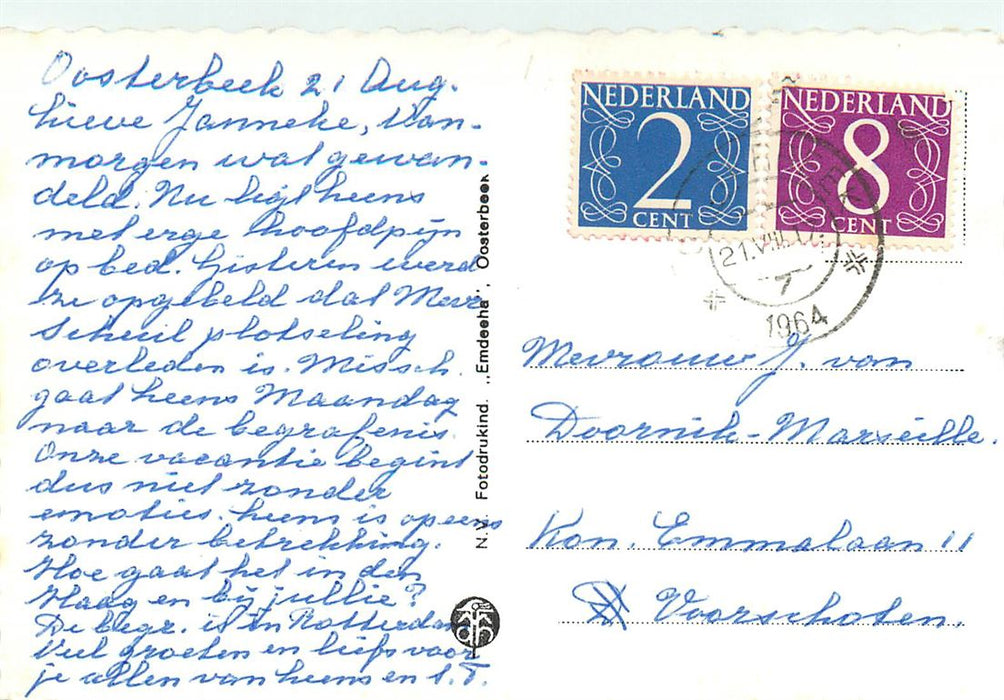 Oosterbeek 21 Aug.
Lieve Janneke, Van-
morgen wat gewan-
deld. Nu ligt heens
met erge hoofdpijn
op bed. Gisteren werd
ze opgebeld dat Mevr
Scheuil plotseling
overleden is. Missch.
gaat heens Maandag
naar de begrafenis.
Onze vacantie begint
dus niet zonder
emoties. heens is opeens
zonder betrekking.
Hoe gaat het in den
Haag en bij jullie?
De begr. is in Rotterdam
Veel groeten en liefs voor
je allen van heens en
N.V. Fotodrukind. „Emdeeha", Oosterbeek
NEDERLAND
2
CENT
NEDERLAND
8
CENT
21.VIII.17
7
1964
Mevrouw J. van
Doornik-Marseille.
Kon. Emmalaan 11
Voorschoten.